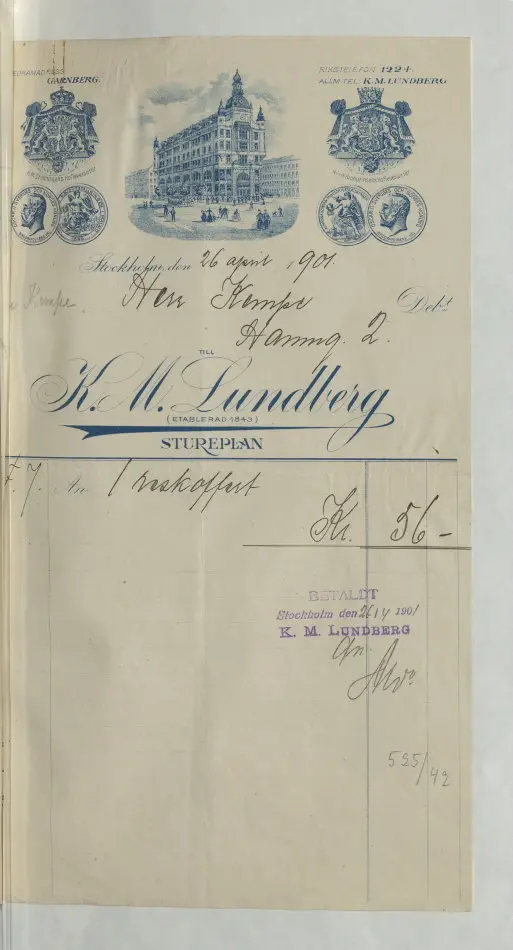 GARNBERG.
RIKSTELEFON 1224.
ALLM TEL. K.M.LUNDBERG
Stockholm, den 26 april 1901.
Herr Kempe Debt
Hamng. 2.
TILL
K. M. Lundberg
(ETABLERAD 1843)
STUREPLAN
1 reskoffert
Kr. 56 -
BETALDT
Stockholm den 26/4 1901
K. M. LUNDBERG
525/42